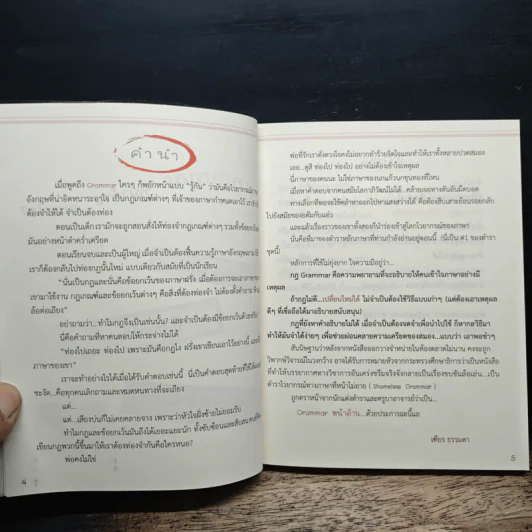 คำนำ
เมื่อพูดถึง Grammar ใครๆ ก็พยักหน้าแบบ "รู้กัน" ว่ามันคือไวยากรณ์ภาษา
อังกฤษที่น่าอิดหนาระอาใจ เป็นกฎเกณฑ์ต่างๆ ที่เจ้าของภาษากำหนดเอาไว้
ต้องจำให้ได้ จำเป็นต้องท่อง
ตอนเป็นเด็ก เรามักจะถูกสอนสั่งให้ท่องจำกฎเกณฑ์ต่างๆ รวมทั้งข้อยกเว้น
มันอย่างหน้าดำคร่ำเครียด
ตอนเรียนจบและเป็นผู้ใหญ่ เมื่อจำเป็นต้องฟื้นความรู้ภาษาอังกฤษ
เราก็ต้องกลับไปท่องกฎนั้นใหม่ แบบเดียวกับสมัยที่เป็นนักเรียน
"นั่นเป็นกฎและนั่นคือข้อยกเว้นของภาษาฝรั่ง เมื่อต้องการจะเอาภาษา
เขามาใช้งาน กฎเกณฑ์และข้อยกเว้นต่างๆ คือสิ่งที่ต้องท่องจำ ไม่ต้องตั้งคำถาม
ล้อต่อเถียง"
อย่าถามว่า...ทำไมกฎจึงเป็นเช่นนั้น? และจำเป็นต้องมีข้อยกเว้นด้วยหรือ
นี่คือคำถามที่หาคนตอบให้กระจ่างไม่ได้
"ท่องไปเถอะ ท่องไป เพราะมันคือกฎไง ฝรั่งเขาเขียนเอาไว้อย่างนี้
ภาษาของเขา"
เราจะทำอย่างไรได้เมื่อได้รับคำตอบเช่นนี้ นี่เป็นคำตอบสุดท้ายที่
ชะงัด...คือทุกคนเลิกถามและหมดหนทางที่จะเถียง
แต่...
แต่...เสียงบ่นก็ไม่เคยคลายจาง เพราะว่าหัวใจฝั่งซ้ายไม่ยอมรับ
ทำไมกฎและข้อยกเว้นมันถึงได้เยอะแยะนัก ทั้งซับซ้อนและสับสน
เขียนกฎพวกนี้ขึ้นมาให้เราต้องท่องจำกันคือใครหนอ?
พ่อคงไม่ใช่
4
พ่อที่รักเราดั่งดวงใจคงไม่อยากทำร้ายจิตใจและทำให้เราทั้งหลายปวดสมอง
เออ...ดูสิ ท่องไป ท่องไป อย่างไม่ต้องเข้าใจเหตุผล
นี่ภาษาของคนนะ ไม่ใช่ภาษาของนกแก้วนกขุนทองที่ไหน
เมื่อหาคำตอบจากคนสมัยโลกาภิวัฒน์ไม่ได้...คล้ายเจอทางตันอันมืดบอด
ทางเลือกที่พอจะใช้คลำหาออกไปหาแสงสว่างได้ คือต้องสืบเสาะย้อนรอยกลับ
ไปยังสมัยของอดัมกับแม้ว
และแล้วเรื่องราวของเขาทั้งสองก็นำร่องเข้าสู่โลกไวยากรณ์ของภาษา
นั่นคือที่มาของตำราหลักภาษาที่ท่านกำลังอ่านอยู่ตอนนี้ (นี่เป็น #1 ของตำรา
ชุดนี้)
หลักการที่ใช้ไม่ยุ่งยาก ใจความมีอยู่ว่า...
กฎ Grammar คือความพยายามที่จะอธิบายให้คนเข้าใจภาษาอย่างมี
เหตุผล
ถ้ากฎไม่ดี...เปลี่ยนใหม่ได้ ไม่จำเป็นต้องใช้วิธีแบบเก่าๆ (แต่ต้องเอาเหตุผล
ดีๆ ที่เชื่อถือได้มาอธิบายสนับสนุน)
กฎที่ยังหาคำอธิบายไม่ได้ เมื่อจำเป็นต้องจดจำเพื่อนำไปใช้ ก็หากลวิธีมา
ทำให้มันจำได้ง่ายๆ เพื่อช่วยผ่อนคลายความเครียดของสมอง...แบบว่า เอาพอขำๆ
สันนิษฐานว่าหลังจากหนังสือออกวางจำหน่ายในท้องตลาดไม่นาน คงจะถูก
วิพากษ์วิจารณ์ในวงกว้าง อาจได้รับการหมายหัวจากกระทรวงศึกษาธิการว่าเป็นหนังสือ
ที่ทำให้บรรยากาศทางวิชาการอันเคร่งขรึมจริงจังกลายเป็นเรื่องขบขันล้อเล่น...เป็น
ตำราไวยากรณ์ทางภาษาที่หน้าไม่อาย (Shameless Grammar)
ถูกตราหน้าจากนักแต่งตำราและครูบาอาจารย์ว่าเป็น...
Grammar หน้าด้าน...ด้วยประการฉะนี้แล
เฑียร ธรรมดา
5